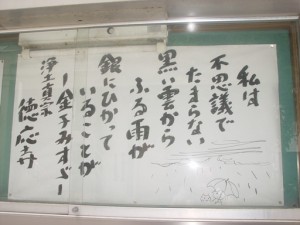 私は
不思議で
たまらない
黒い雲から
ふる雨が
銀にひかって
いることが
ー金子みすゞー
浄土真宗
徳応寺